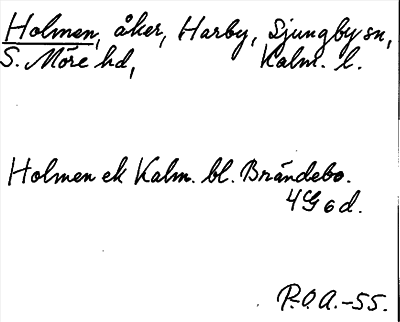 Holmen, åker, Harby, Ljungby sn,
S. Möre hd, Kalm. l.
Holmen ek Kalm. bl. Brändebo.
4G 6 d.
P.O.A.-55.